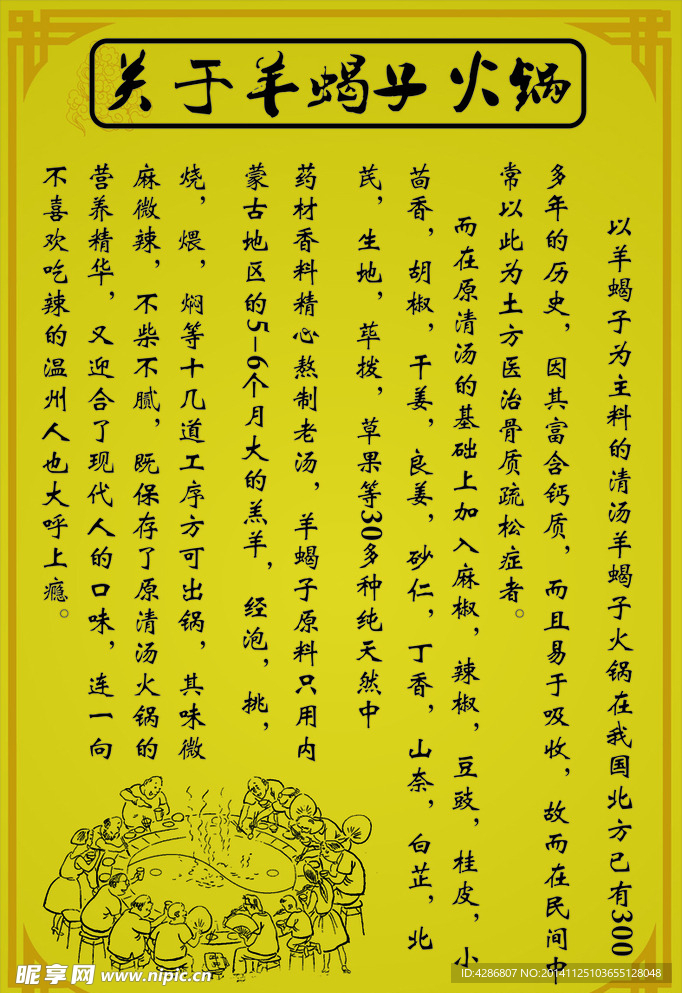 关于羊蝎子火锅
以羊蝎子为主料的清汤羊蝎子火锅在我国北方已有300
多年的历史，因其富含钙质，而且易于吸收，故而在民间中
常以此为土方医治骨质疏松症者。
而在原清汤的基础上加入麻椒，辣椒，豆豉，桂皮，小
茴香，胡椒，干姜，良姜，砂仁，丁香，山奈，白芷，北
芪，生地，荜拨，草果等30多种纯天然中
药材香料精心熬制老汤，羊蝎子原料只用内
蒙古地区的5-6个月大的羔羊，经泡，挑，
烧，煨，焖等十几道工序方可出锅，其味微
麻微辣，不柴不腻，既保存了原清汤火锅的
营养精华，又迎合了现代人的口味，连一向
不喜欢吃辣的温州人也大呼上瘾。
昵享网 www.nipic.cn
ID:4286807 NO:20141125103655128048